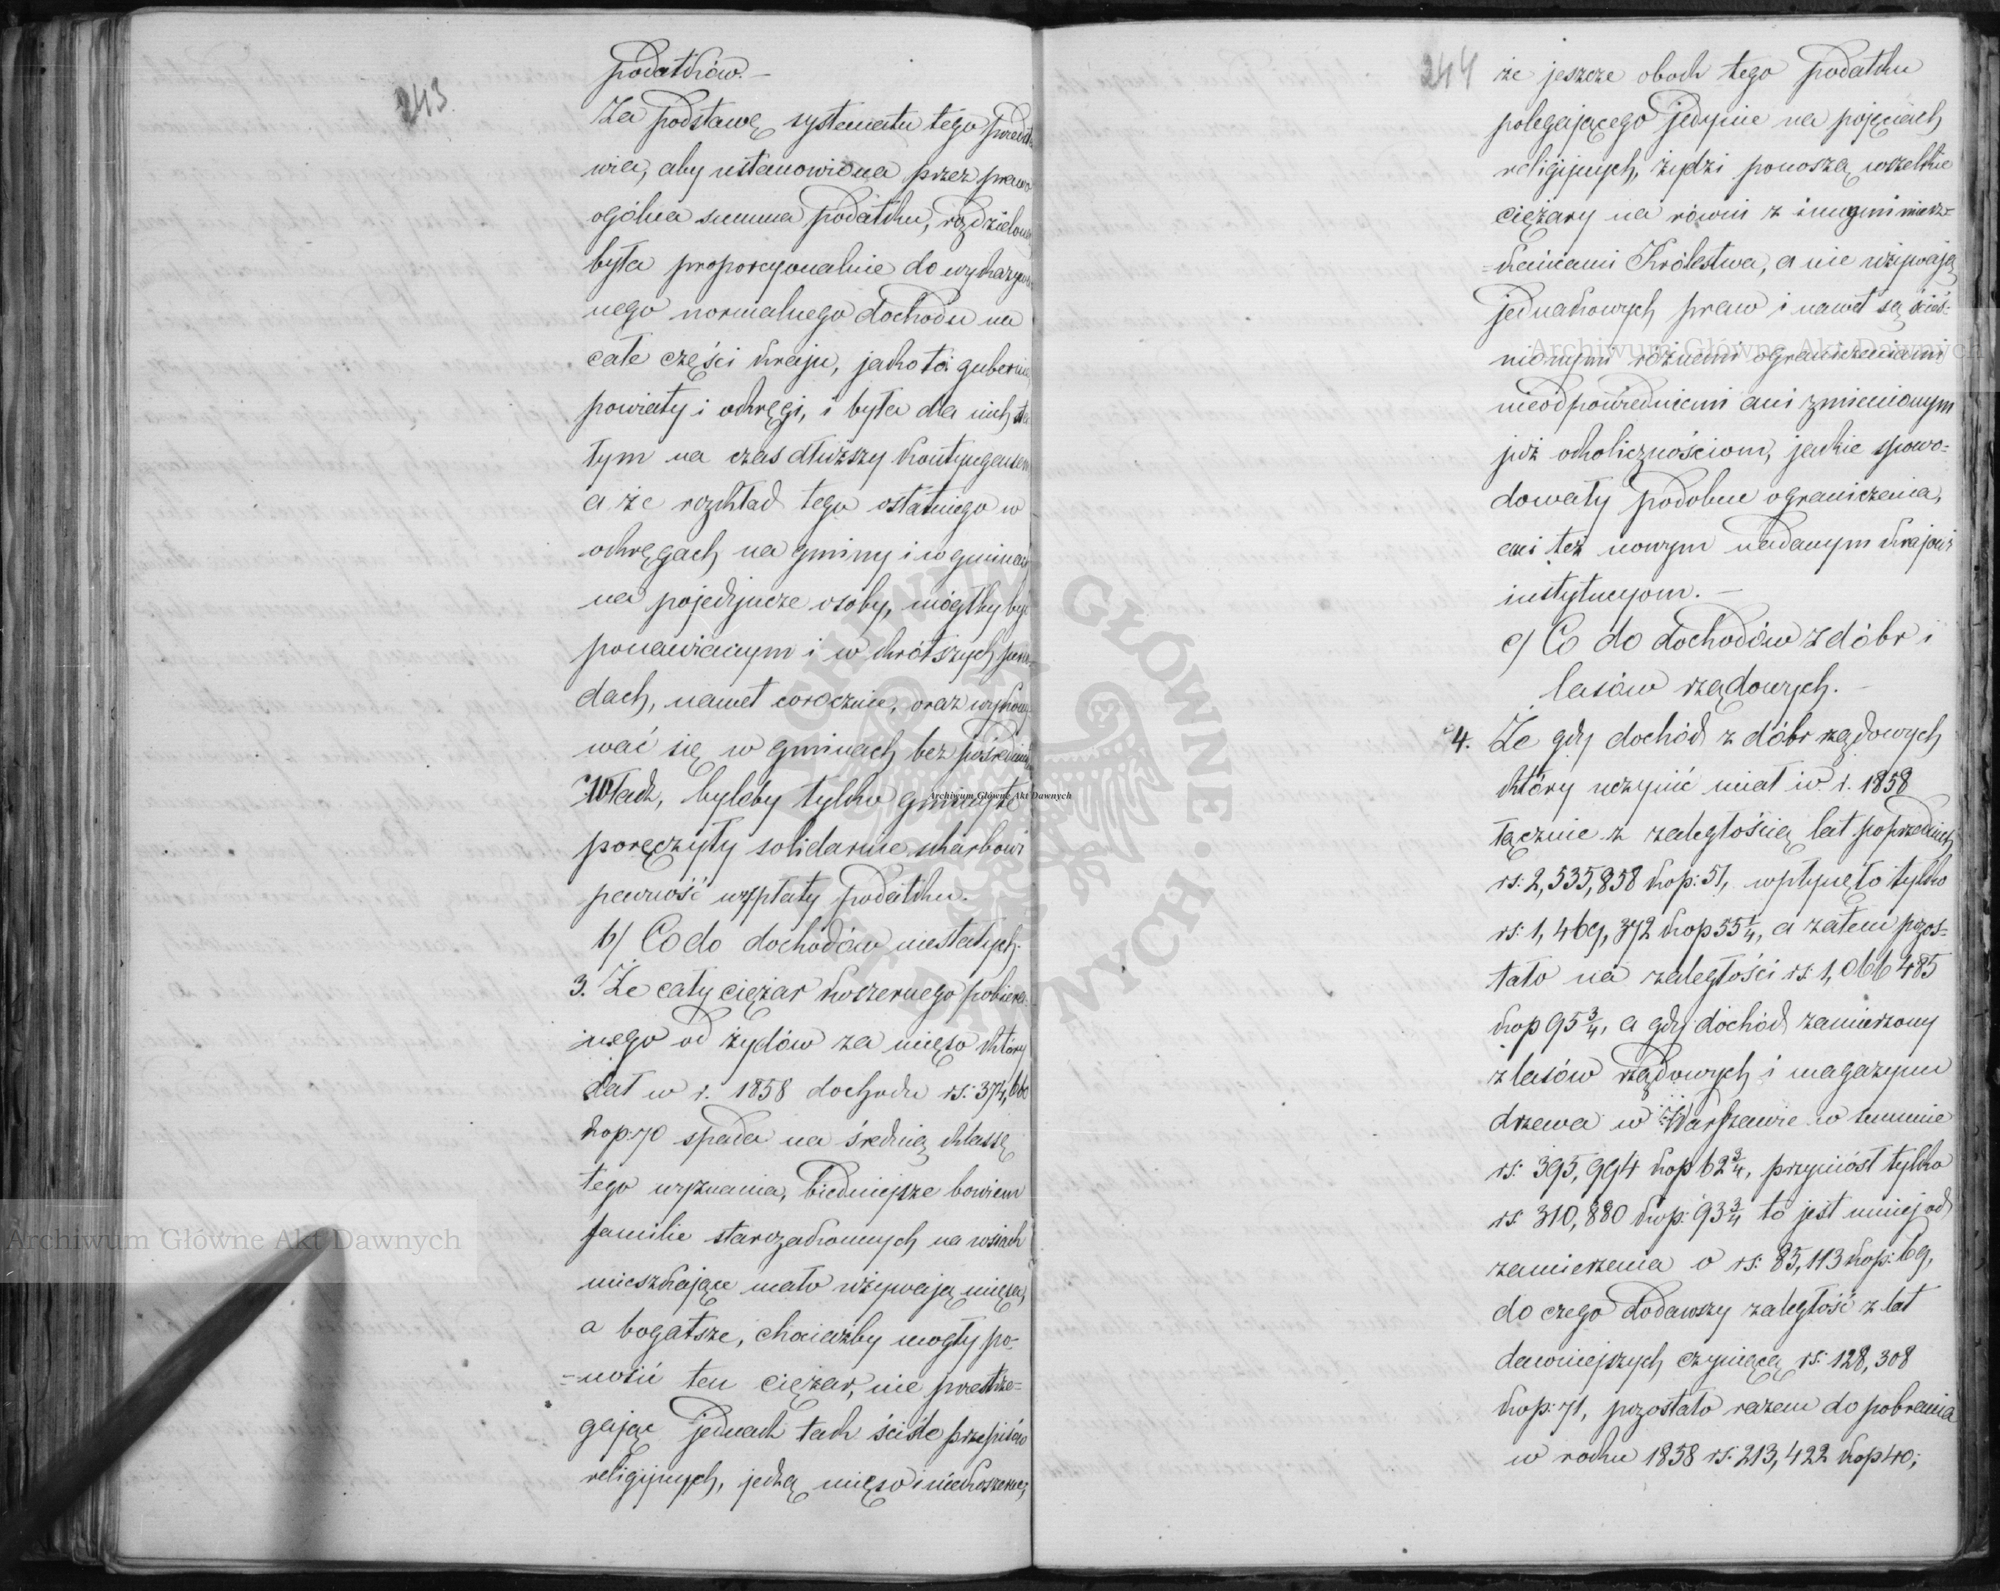 243.
podatków. —
Za podstawę systematu tego przedsta-
wia, aby ustanowiona przez prawo
ogólna summa podatku, rozdzielona
była proporcyonalnie do wykazywa-
nego normalnego dochodu na
całe części kraju, jako to: gubernie,
powiaty i okręgi, i była dla nich sta-
łym na czas dłuższy kontyngensem
a że rozkład tego ostatniego w
okręgach na gminy i w gminach
na pojedyncze osoby, mógłby być
ponawianym i w krótszych perio-
dach, nawet corocznie, oraz wykony-
wać się w gminach bez pośrednictwa
Władz, byleby tylko gminy te
poręczyły solidarnie skarbowi
pewność wypłaty podatku.
b/ Co do dochodów niestałych.
3. Że cały ciężar koszernego pobiera-
nego od żydów za mięso który
dał w r. 1858 dochodu rs: 374,660
kop: 70 spada na średnią klassę
tego wyznania, biedniejsze bowiem
familie starozakonnych na wsiach
mieszkające mało używają mięsa,
a bogatsze, chociażby mogły po-
=nosić ten ciężar, nie przestrze=
gając jednak tak ściśle przepisów
religijnych, jedzą mięso i niekoszerne,
244
że jeszcze obok tego podatku
polegającego jedynie na pojęciach
religijnych, żydzi ponoszą wszelkie
ciężary na równi z innymi miesz=
=kańcami Królestwa, a nie używają
jednakowych praw i nawet są ścieś=
nionymi różnemi ograniczeniami
nieodpowiedniemi ani zmienionym
już okolicznościom, jakie spowo=
dowały podobne ograniczenia,
ani też nowym nadanym krajowi
instytucyom. —
c/ Co do dochodów z dóbr i
lasów rządowych. —
4. Że gdy dochód z dóbr rządowych
który uczynić miał w r. 1858
łącznie z zaległością lat poprzednich
rs: 2,535,858 kop: 51, wpłynęło tylko
rs: 1,469,372 kop 55 1/4, a zatem pozos=
tało na zaległości rs: 1,066 485
kop 95 3/4, a gdy dochód zamierzony
z lasów rządowych i magazynu
drzewa w Warszawie w summie
rs: 395,994 kop 62 3/4, przyniósł tylko
rs 310,880 kop: 93 3/4 to jest mniej od
zamierzenia o rs: 85,113 kop: 69,
do czego dodawszy zaległość z lat
dawniejszych czyniącą rs: 128,308
kop: 71, pozostało razem do pobrania
w roku 1858 rs: 213,422 kop 40;
Archiwum Główne Akt Dawnych
Archiwum Główne Akt Dawnych
Archiwum Główne Akt Dawnych